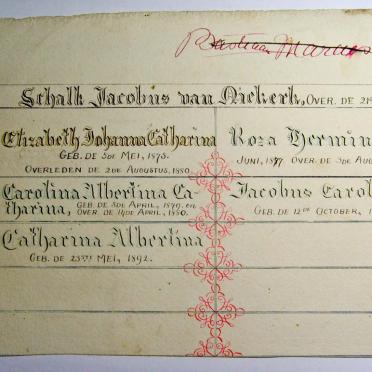 Schalk Jacobus van Niekerk, OVER. DE 21
Elizabeth Johanna Catharina
GEB. DE 5DE MEI, 1875.
OVERLEDEN DE 2DE AUGUSTUS, 1880.
Roza Hermin
JUNI, 1877. OVER. DE 3DE AU
Carolina Albertina Ca-
tharina, GEB. DE 5DE APRIL, 1879. en
OVER. DE 14DE APRIL, 1880.
Jacobus Carol
GEB. DE 12DE OCTOBER, 1
Catharina Albertina
GEB. DE 25STE MEI, 1892.